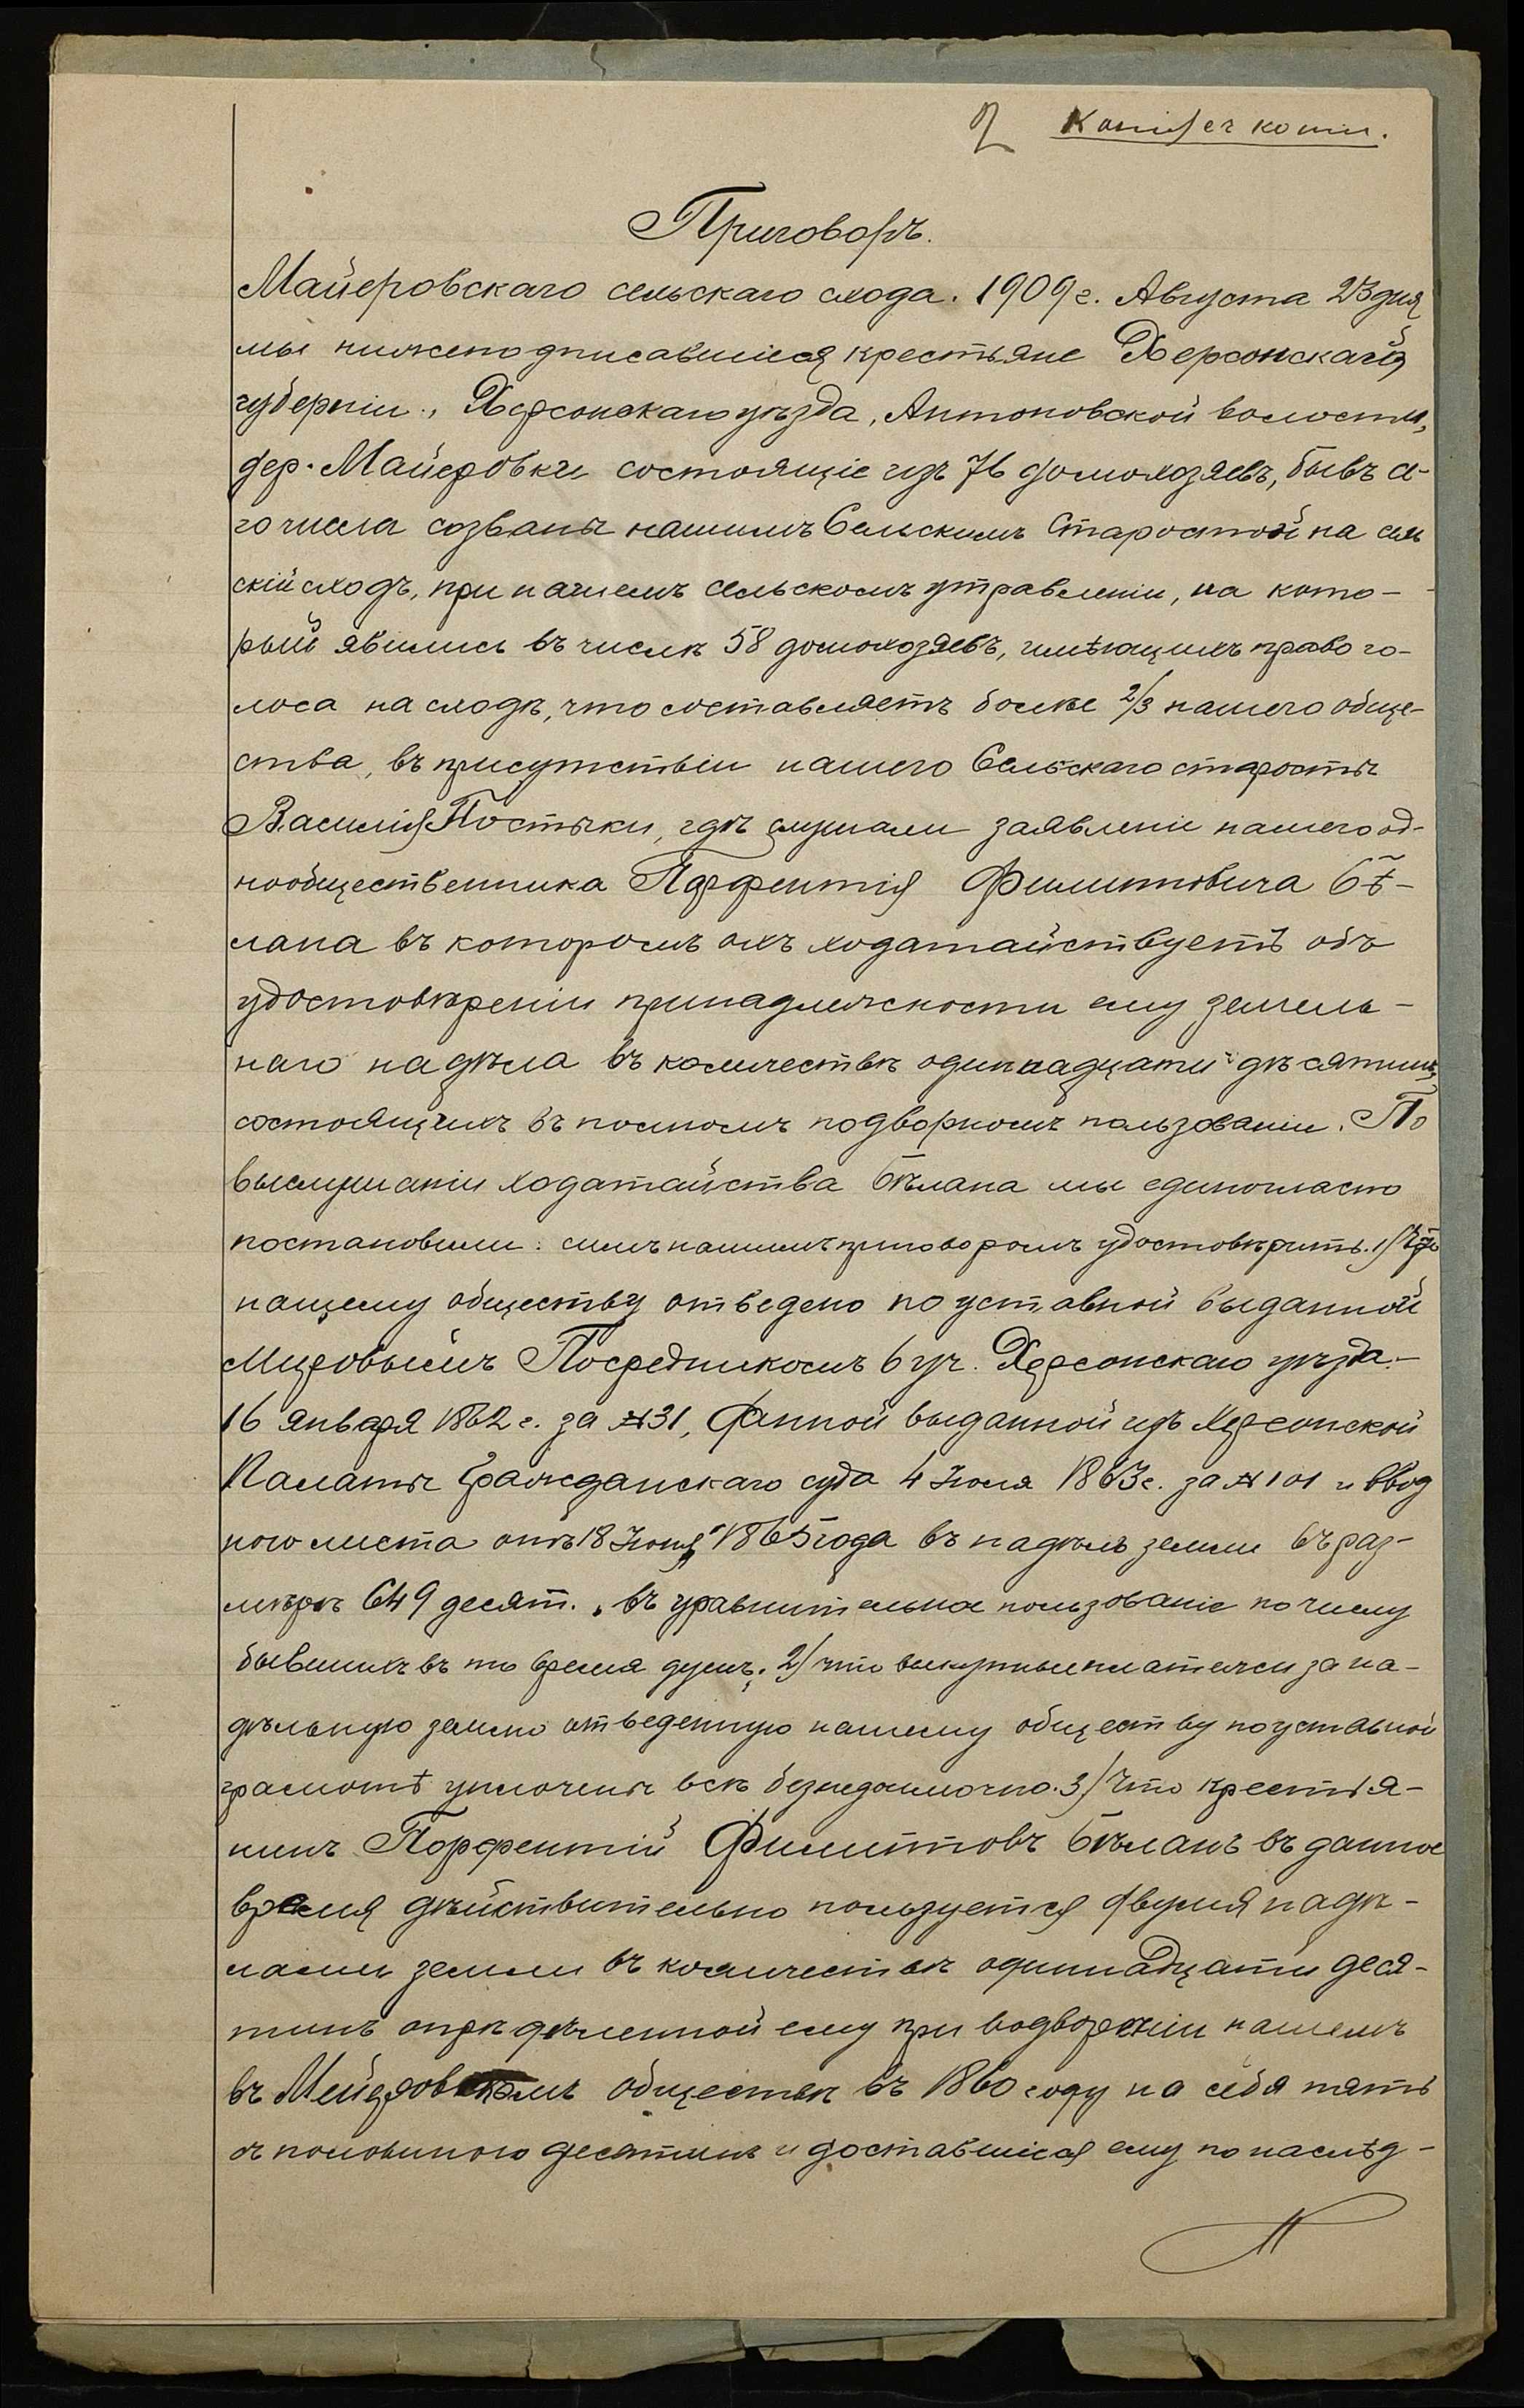 2 Копія съ копіи.
Приговоръ.
Майеровскаго сельскаго схода. 1909 г. Августа 23 дня
мы нижеподписавшіеся крестьяне Херсонской
губерніи, Херсонскаго уѣзда, Антоновской волости,
дер. Майеровки состоящіе изъ 76 домохозяевъ, бывъ се-
го числа созваны нашимъ Сельскимъ Старостой на сель
скій сходъ, при нашемъ сельскомъ управленіи, на кото-
рый явились въ числѣ 58 домохозяевъ, имѣющихъ право го-
лоса на сходѣ, что составляетъ болѣе 2/3 нашего обще-
ства, въ присутствіи нашего Сельскаго старосты
Василія Костычки, гдѣ слушали заявленіе нашего од-
нообщественника Парфентія Филипповича Бѣ-
лана въ которомъ онъ ходатайствуетъ объ
удостовѣреніи принадлежности ему земель-
наго надѣла въ количествѣ одиннадцати десятинъ,
состоящихъ въ полномъ подворномъ пользованіи. По
выслушаніи ходатайства Бѣлана мы единогласно
постановили: симъ нашимъ приговоромъ удостовѣрить. 1) Что
нашему обществу отведено по уставной выданной
Мировымъ Посредникомъ 6 уч. Херсонскаго уѣзда.-
16 января 1862 г. за № 31, данной выданной изъ Херсонской
Палаты Гражданскаго суда 4 Іюля 1863 г. за № 101 и ввод
ного листа отъ 18 Іюня 1865 года въ надѣлъ земли въ раз-
мѣрѣ 649 десят., въ уравнительное пользованіе по числу
бывшихъ въ то время душъ. 2) что выкупные платежи за на-
дѣльную землю отведенную нашему обществу по уставной
грамотѣ уплочены всѣ безнедоимочно. 3) Что крестья-
нинъ Порфентій Филипповъ Бѣланъ въ данное
время дѣйствительно пользуется двумя надѣ-
лами земли въ количествѣ одиннадцати деся-
тинъ опредѣленной ему при водвореніи нашемъ
въ Мейеровскомъ обществѣ въ 1860 году на себя пять
съ половиною десятинъ и доставшіеся ему по наслѣд-